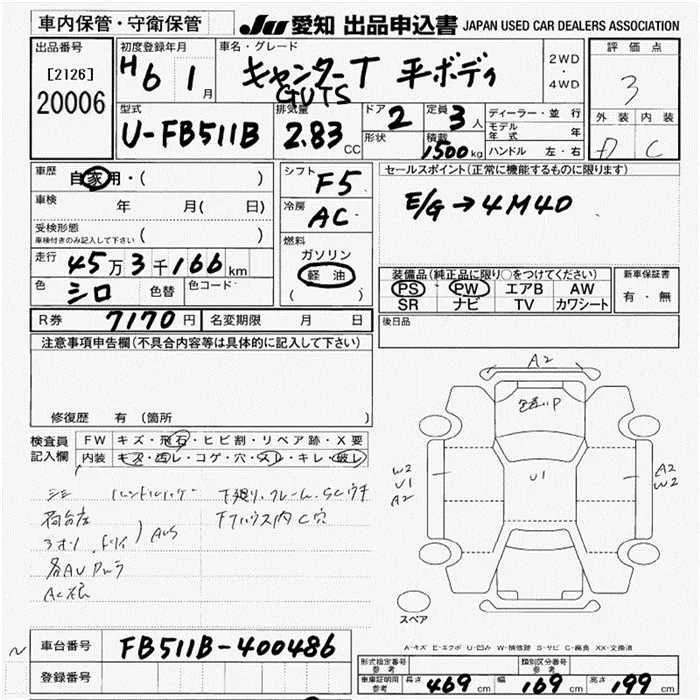 車内保管・守衛保管
JU 愛知 出品申込書 JAPAN USED CAR DEALERS ASSOCIATION
出品番号
[2126]
20006
初度登録年月
H6 1月
車名・グレード
キャンターT 平ボディ
GUTS
2WD
・
4WD
評価点
3
外装 内装
C
型式
U-FB511B
排気量
2.83 CC
ドア
2
形状
定員
3人
積載
1500kg
ディーラー・並行
モデル年式 年
ハンドル 左・右
車歴
自家用・( )
車検 年 月( 日)
受検形態
車検付きのみ記入して下さい ( )
走行 45万3千166km
色 シロ 色替 色コード
シフト
F5
冷房
AC
燃料
ガソリン
軽油
( )
セールスポイント(正常に機能するものに限ります)
E/G→4M40
装備品(純正品に限り○をつけてください)
PS PW エアB AW
SR ナビ TV カワシート
新車保証書
有・無
R券 7170円 名変期限 月 日
後日品
注意事項申告欄(不具合内容等は具体的に記入して下さい)
修復歴 有 (箇所
検査員
記入欄
FW キズ・飛石・ヒビ割・リペア跡・X要
内装 キズ・汚レ・コゲ・穴・スレ・キレ・破レ
A2
P
U1
W2
U1
A2
A2
W2
スペア
A-キズ E-エクボ U-凹み W-補修跡 S-サビ C-腐食 XX-交換済
車台番号 FB511B-400486
登録番号
形式指定番号
参考
類別区分番号
参考
車庫証明用
参考
長さ 469cm 幅 169cm 高さ 199cm